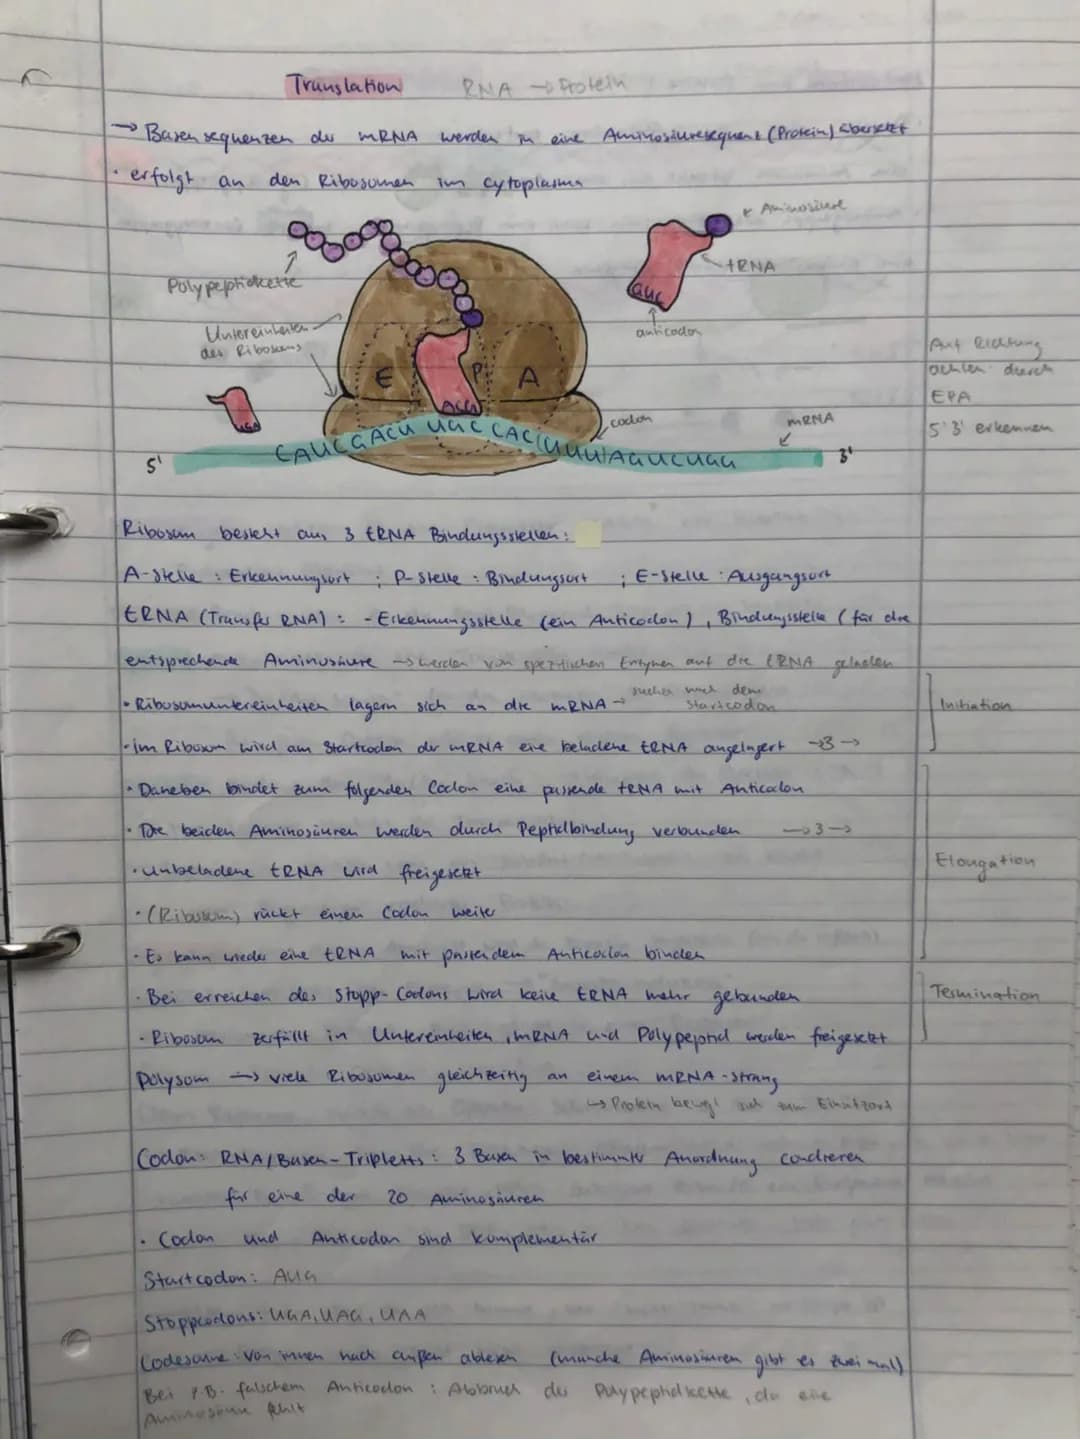 Translation RNA → Protein
→ Basensequenzen der mRNA werden in eine Aminosäuresequenz (Protein) übersetzt
· erfolgt an den Ribosomen im Cytoplasma
Aminosäure
tRNA
AUC
anticodon
Polypeptidkette
Untereinheiten
des Ribosoms
E P A
codon
mRNA
5' CAUCGACU UGC CAC UUU AGUCUGG 3'
Auf Richtung
achten durch
EPA
5' 3' erkennen
Ribosom besteht aus 3 tRNA Bindungsstellen:
A-Stelle : Erkennungsort ; P-Stelle : Bindungsort ; E-Stelle : Ausgangsort
tRNA (Transfer RNA) : - Erkennungsstelle (ein Anticodon), Bindungsstelle (für die
entsprechende Aminosäure → werden von spezifischen Enzymen auf die tRNA geladen
· Ribosomuntereinheiten lagern sich an die mRNA → suchen nach dem
Startcodon
Initiation
· im Ribosom wird am Startcodon der mRNA eine beladene tRNA angelagert →3→
· Daneben bindet zum folgenden Codon eine passende tRNA mit Anticodon
· Die beiden Aminosäuren werden durch Peptidbindung verbunden →3→
Elongation
· unbeladene tRNA wird freigesetzt
· (Ribosom) rückt einen Codon weiter
· Es kann wieder eine tRNA mit passendem Anticodon binden
· Bei erreichen des Stopp-Codons wird keine tRNA mehr gebunden
Termination
· Ribosom zerfällt in Untereinheiten, mRNA und Polypeptid werden freigesetzt
Polysom → viele Ribosomen gleichzeitig an einem mRNA-Strang
↳ Protein bewegt sich zum Einsatzort
Codon: RNA/Basen-Tripletts: 3 Basen in bestimmter Anordnung codieren
für eine der 20 Aminosäuren
· Codon und Anticodon sind komplementär
Startcodon: AUG
Stoppcodons: UGA, UAG, UAA
Codesonne von innen nach außen ablesen (manche Aminosäuren gibt es zweimal)
Bei z.B. falschem Anticodon : Abbruch der Polypeptidkette, da eine
Aminosäure fehlt